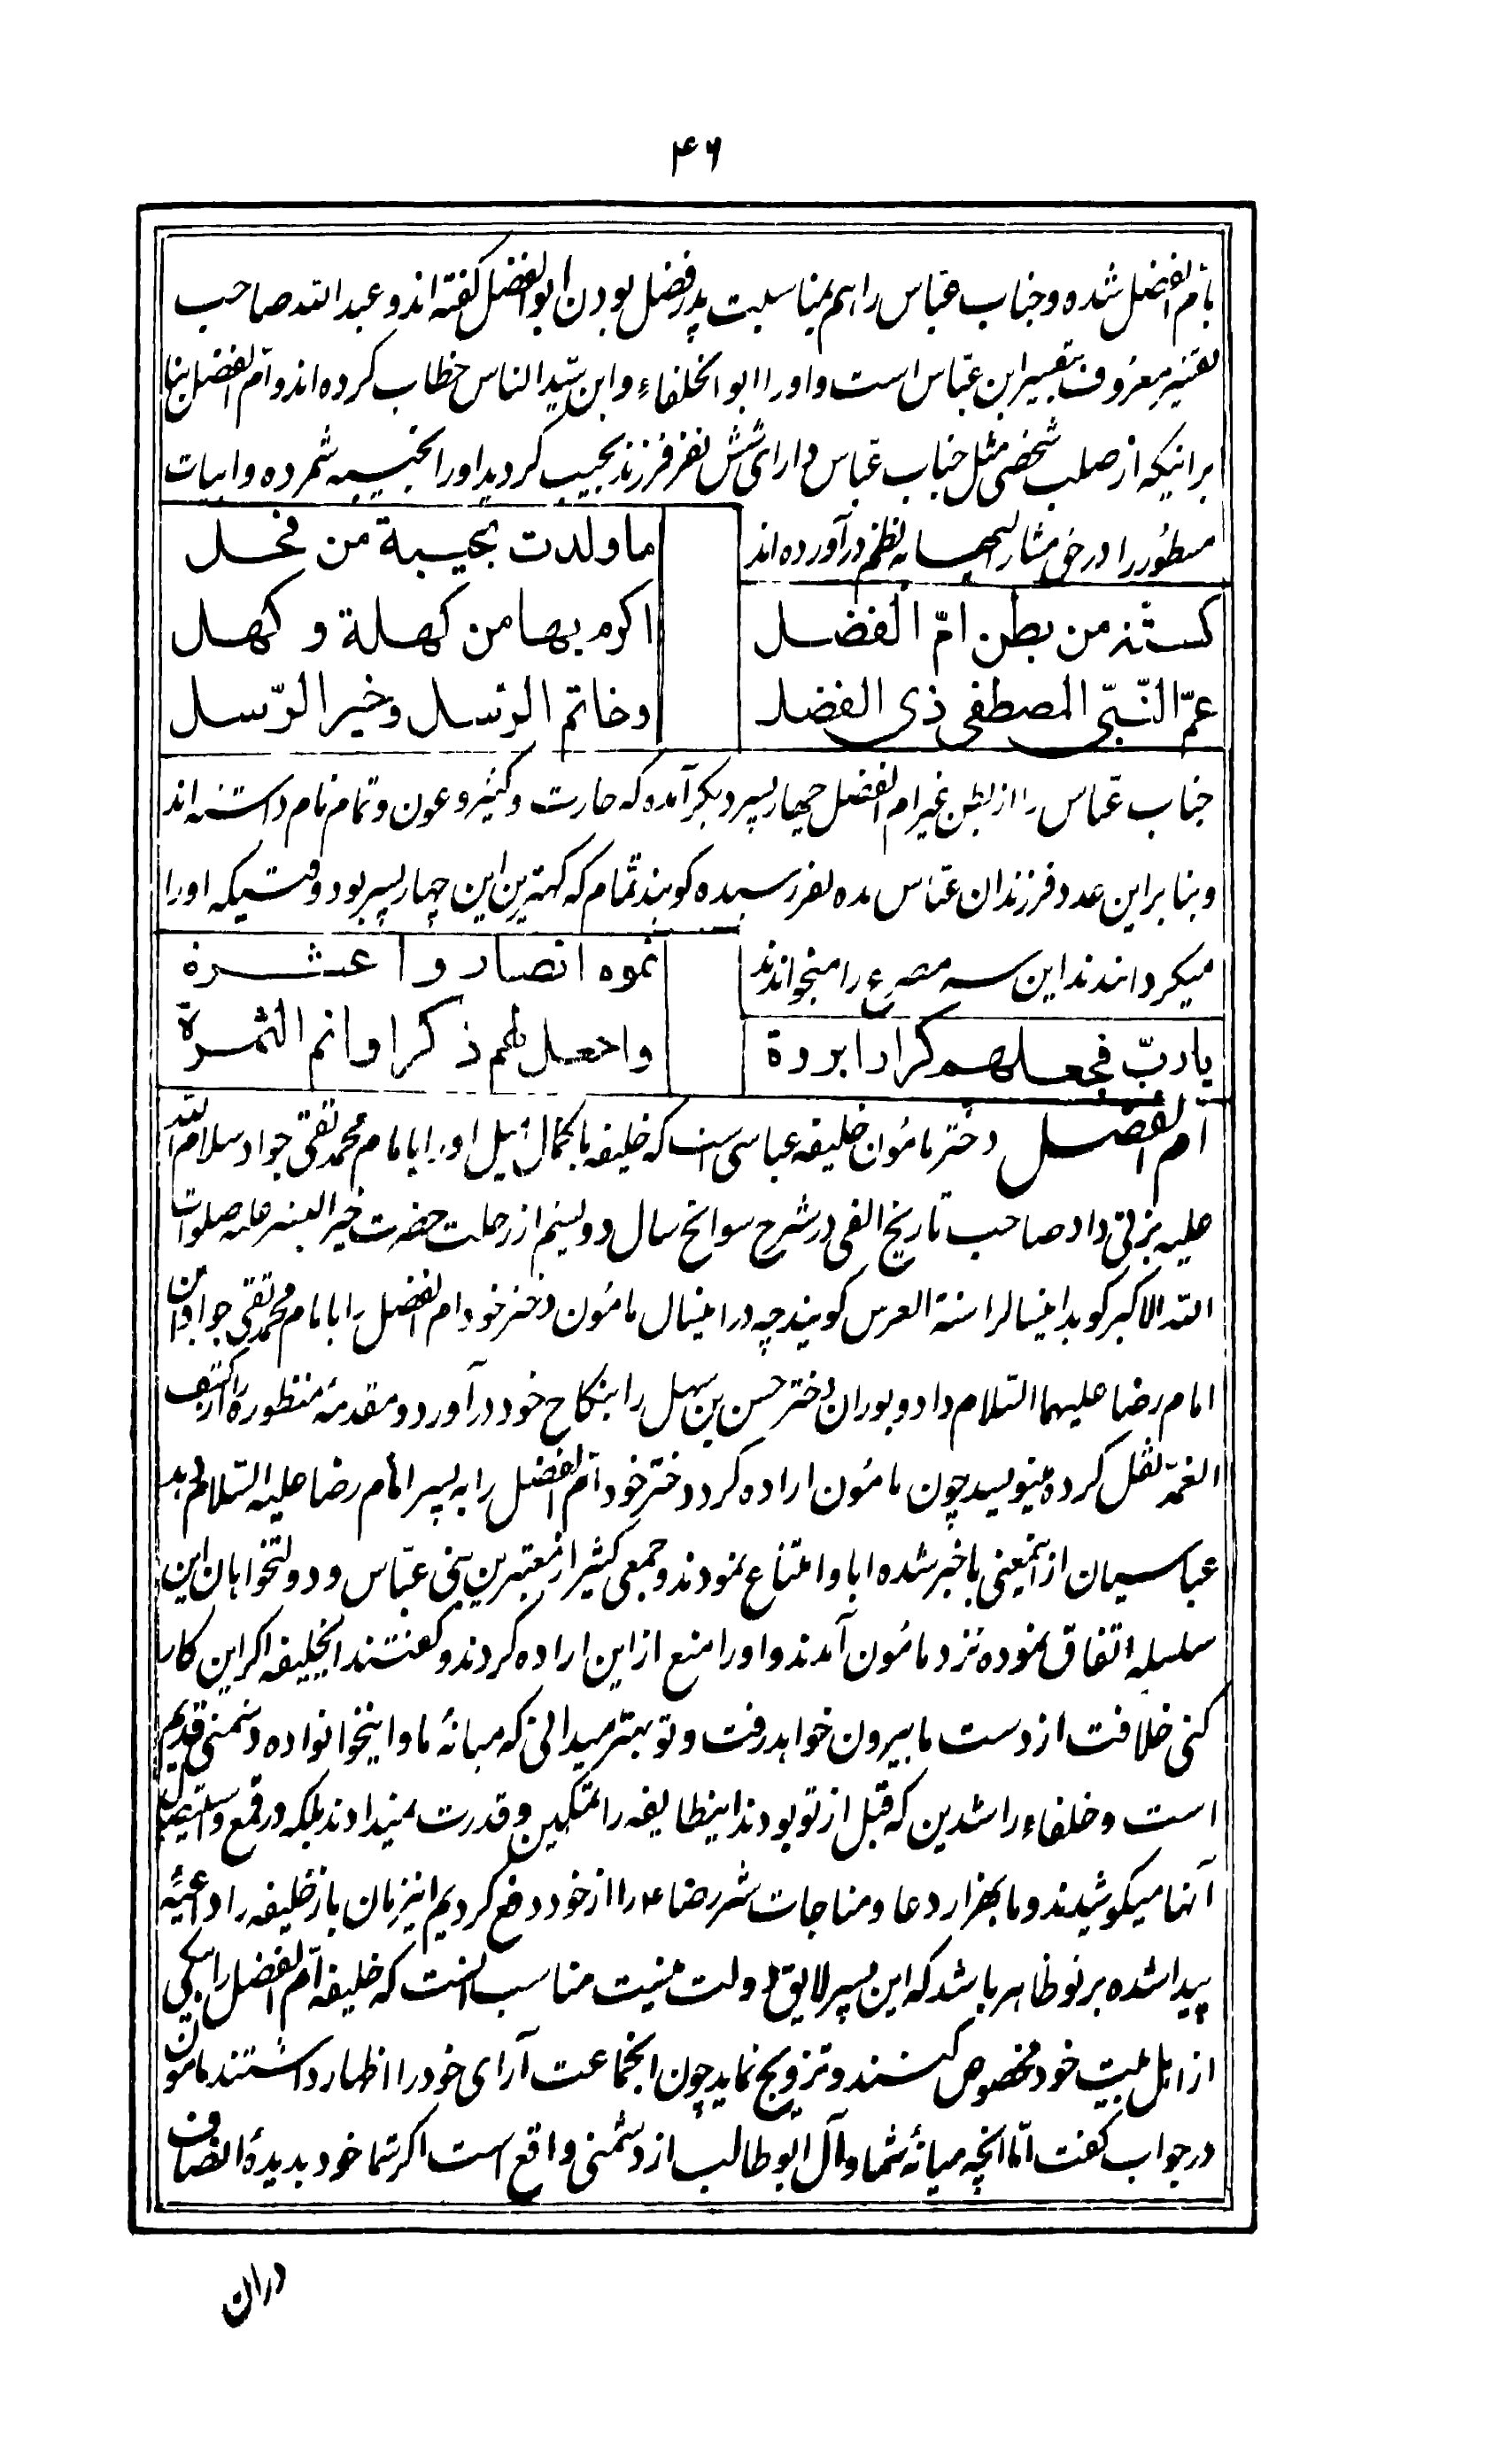 ۴۶
بامّ الفضل شده و جناب عبّاس را هم بمناسبت پدر فضل بودن ابوالفضل کفته‌اند و عبدالله صاحب
تفسیر معروف بتفسیر ابن عبّاس است و او را ابوالخلفاء و ابن سیّد الناس خطاب کرده‌اند و امّ الفضل بنا
بر اینکه از صلب شخصی مثل جناب عبّاس دارای شش نفر فرزند نجیب کردید او را نجیبه شمرده و ابیات
مسطور را در حق مشار الیها به نظم در آورده‌اند
ما ولدت نجیبة من فحل
کستّة من بطن امّ الفضل
اکرم بها من کهلة و کهل
عمّ النّبیّ المصطفی ذی الفضل
و خاتم الرّسل و خیر الرّسل
جناب عبّاس را از بطن غیر ام الفضل چهار پسر دیکر آمده که حارث و کثیر و عون و تمام نام داشته‌اند
و بنا بر این عدد فرزندان عبّاس بده نفر رسیده کویند تمام که کهترین این چهار پسر بود وقتیکه او را
میکردانندند این سه مصرع را میخواندند
تموه انصار وا عشرة
یا ربّ فجعلهم کرارا بررة
واجعل لهم ذکرا وانم الثمرة
امّ الفضل دختر مامون خلیفه عباسی است که خلیفه با کمال میل او را با امام محمد تقی جواد سلام الله
علیه بزنی داد صاحب تاریخ الفی در شرح سوانح سال دویستم از رحلت حضرت خیر البشر علیه صلوات
الله الاکبر کوید اینسال را سنة العرس کویند چه در اینسال مامون دختر خود ام الفضل را با امام محمد تقی جواد ابن
امام رضا علیهما السّلام داد و بوران دختر حسن بن سهل را بنکاح خود در آورد و مقدمهٔ منظوره را از کشف
الغمّه نقل کرده مینویسد چون مامون اراده کرد دختر خود امّ الفضل را به پسر امام رضا علیه السّلام بدهد
عباسیان از اینمعنی با خبر شده ابا و امتناع نمودند و جمعی کثیر از معتبرین بنی عبّاس و دولتخواهان این
سلسله اتفاق نموده نزد مامون آمدند و او را منع از این اراده کردند و کفتند ایخلیفه اکر این کار
کنی خلافت از دست ما بیرون خواهد رفت و تو بهتر میدانی که میانهٔ ما و اینخانواده دشمنی قدیم
است و خلفاء راشدین که قبل از تو بودند اینطایفه را تمکین و قدرت نمیدادند بلکه در قمع و استیصال
آنها میکوشیدند و ما بهزار دعا و مناجات شر رضا ع را از خود دفع کردیم اینزمان باز خلیفه را داعیهٔ
پیدا شده بر تو ظاهر باشد که این پسر لایق دولت نیست مناسب انست که خلیفه امّ الفضل را بیکی
از اهل بیت خود مخصوص کنند و تزویج نماید چون انجماعت آرای خود را اظهار داشتند مامون
در جواب کفت امّا انچه میانهٔ شما و آل ابوطالب از دشمنی واقع است اکر شما خود بدیدهٔ انصاف
در ان